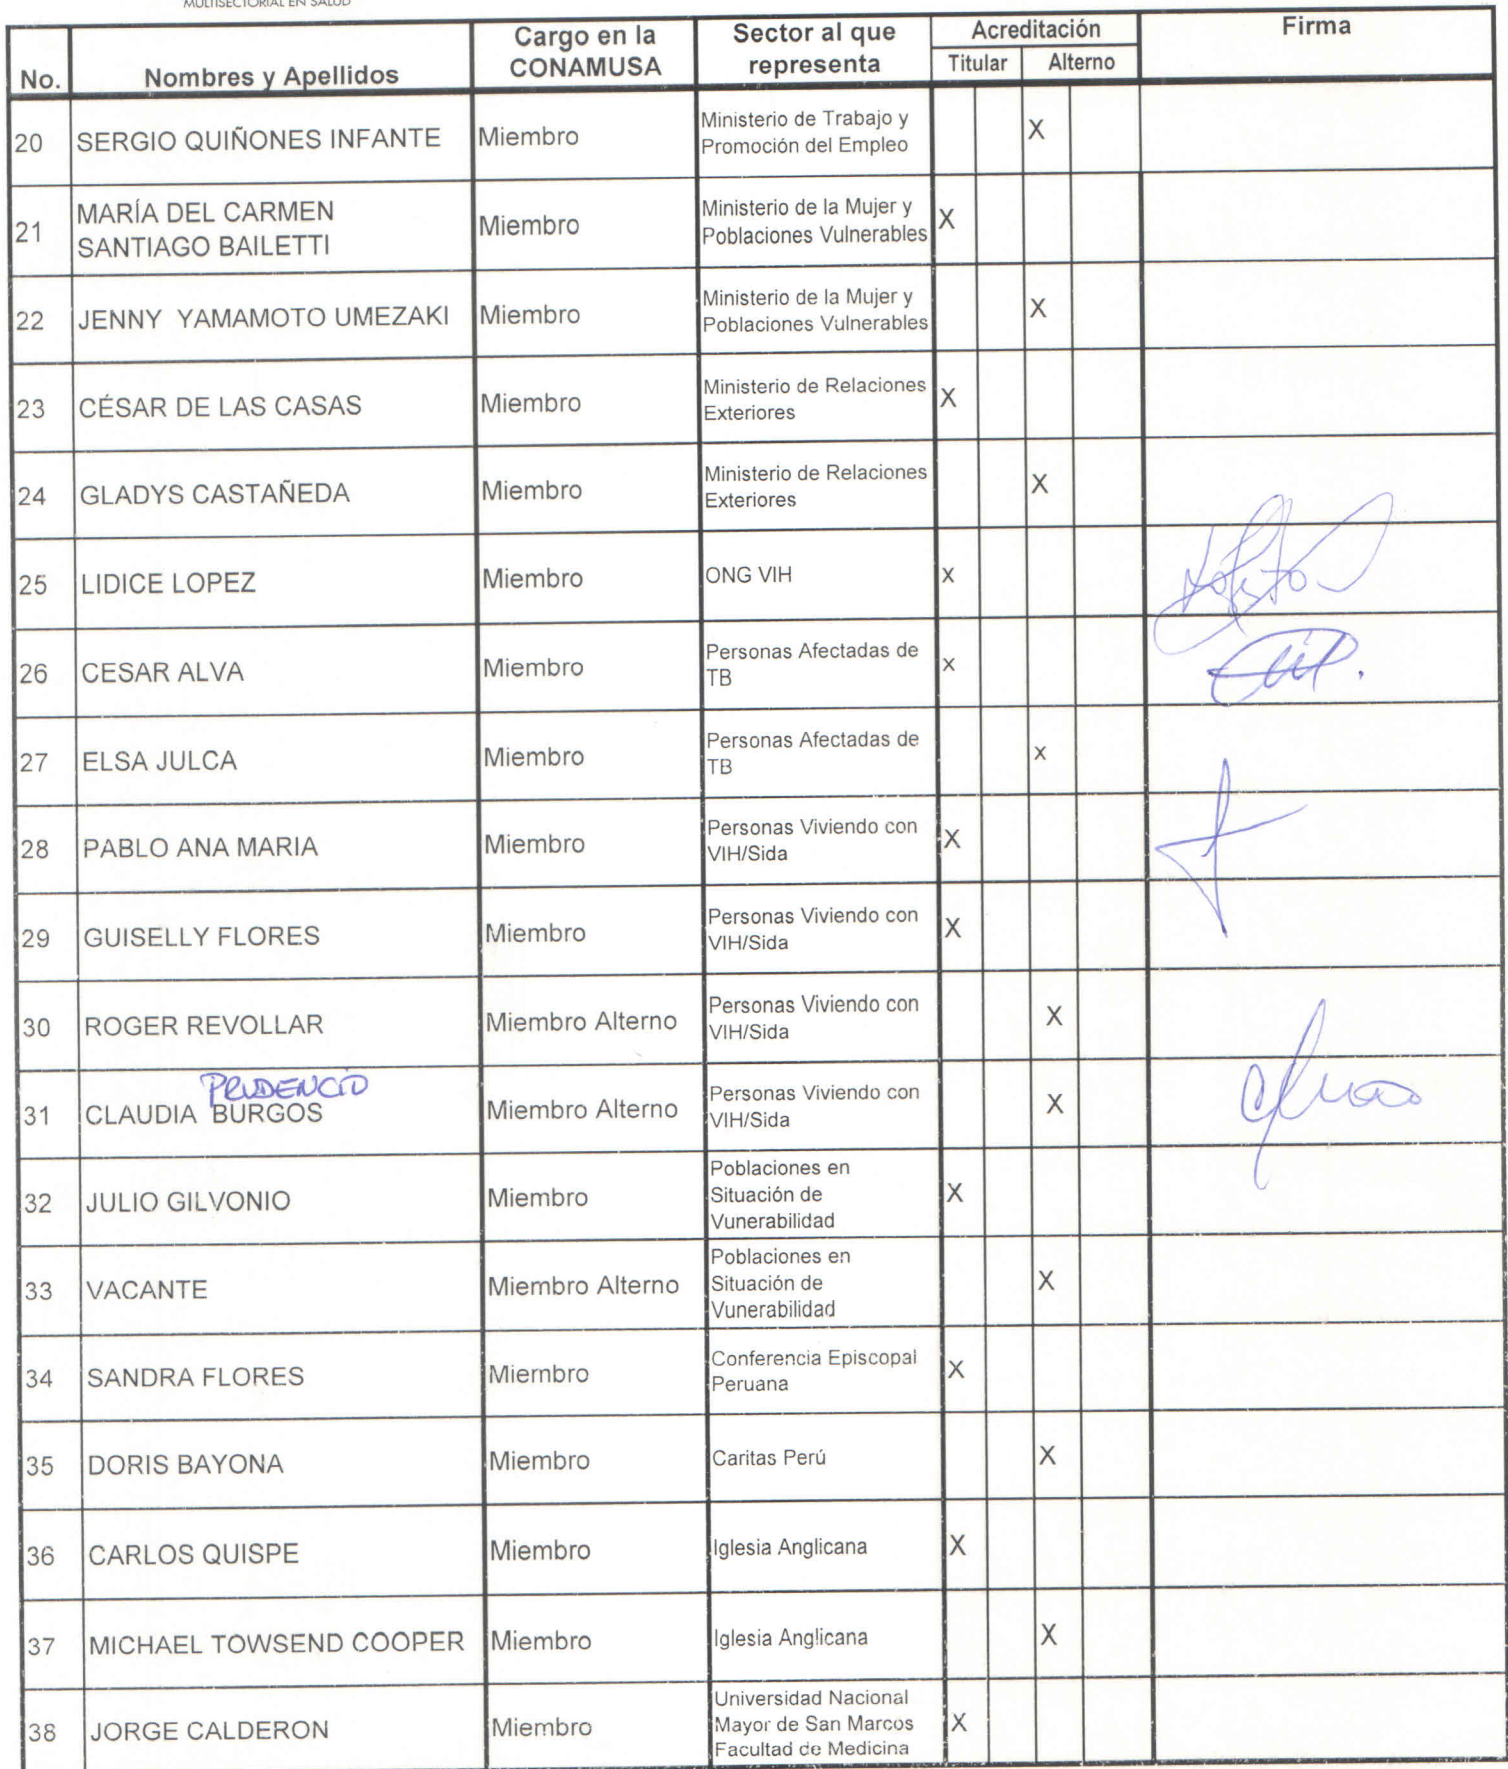 MULTISECTORIAL EN SALUD
No. Nombres y Apellidos Cargo en la CONAMUSA Sector al que representa Acreditación Titular Alterno Firma
20 SERGIO QUIÑONES INFANTE Miembro Ministerio de Trabajo y Promoción del Empleo X
21 MARÍA DEL CARMEN SANTIAGO BAILETTI Miembro Ministerio de la Mujer y Poblaciones Vulnerables X
22 JENNY YAMAMOTO UMEZAKI Miembro Ministerio de la Mujer y Poblaciones Vulnerables X
23 CÉSAR DE LAS CASAS Miembro Ministerio de Relaciones Exteriores X
24 GLADYS CASTAÑEDA Miembro Ministerio de Relaciones Exteriores X
25 LIDICE LOPEZ Miembro ONG VIH x
26 CESAR ALVA Miembro Personas Afectadas de TB x
27 ELSA JULCA Miembro Personas Afectadas de TB x
28 PABLO ANA MARIA Miembro Personas Viviendo con VIH/Sida X
29 GUISELLY FLORES Miembro Personas Viviendo con VIH/Sida X
30 ROGER REVOLLAR Miembro Alterno Personas Viviendo con VIH/Sida X
PRUDENCIO
31 CLAUDIA BURGOS Miembro Alterno Personas Viviendo con VIH/Sida X
32 JULIO GILVONIO Miembro Poblaciones en Situación de Vunerabilidad X
33 VACANTE Miembro Alterno Poblaciones en Situación de Vunerabilidad X
34 SANDRA FLORES Miembro Conferencia Episcopal Peruana X
35 DORIS BAYONA Miembro Caritas Perú X
36 CARLOS QUISPE Miembro Iglesia Anglicana X
37 MICHAEL TOWSEND COOPER Miembro Iglesia Anglicana X
38 JORGE CALDERON Miembro Universidad Nacional Mayor de San Marcos Facultad de Medicina X